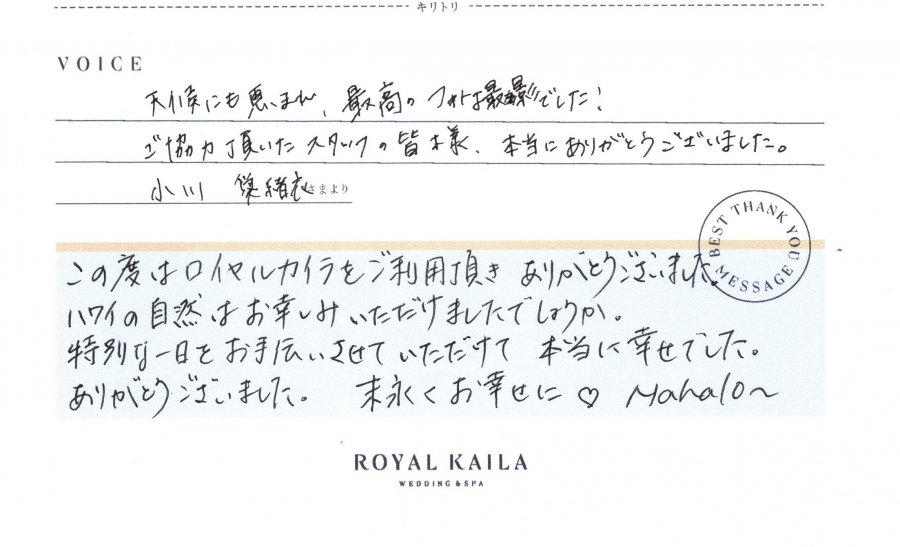 キリトリ
VOICE
天候にも恵まれ、最高のフォト撮影でした!
ご協力頂いたスタッフの皆様、本当にありがとうございました。
小川 緒衣さまより
BEST THANK YOU MESSAGE
この度はロイヤルカイラをご利用頂き ありがとうございました。
ハワイの自然はお楽しみいただけましたでしょうか。
特別な一日をお手伝いさせていただけて 本当に幸せでした。
ありがとうございました。 末永くお幸せに♡ Mahalo～
ROYAL KAILA
WEDDING & SPA